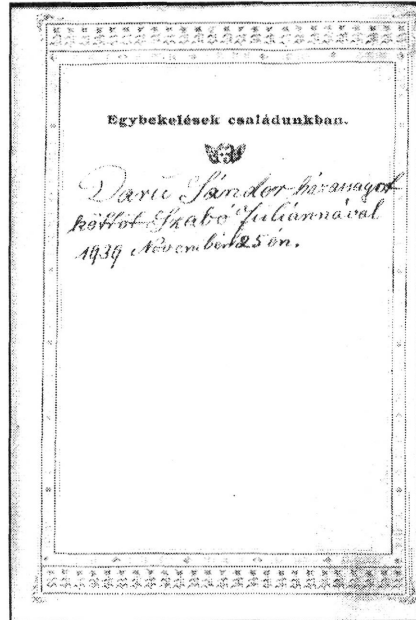 Egybekelések családunkban.
Daru Sándor házasságot
kötöt Szabó Juliánnával
1939 November 25 én.